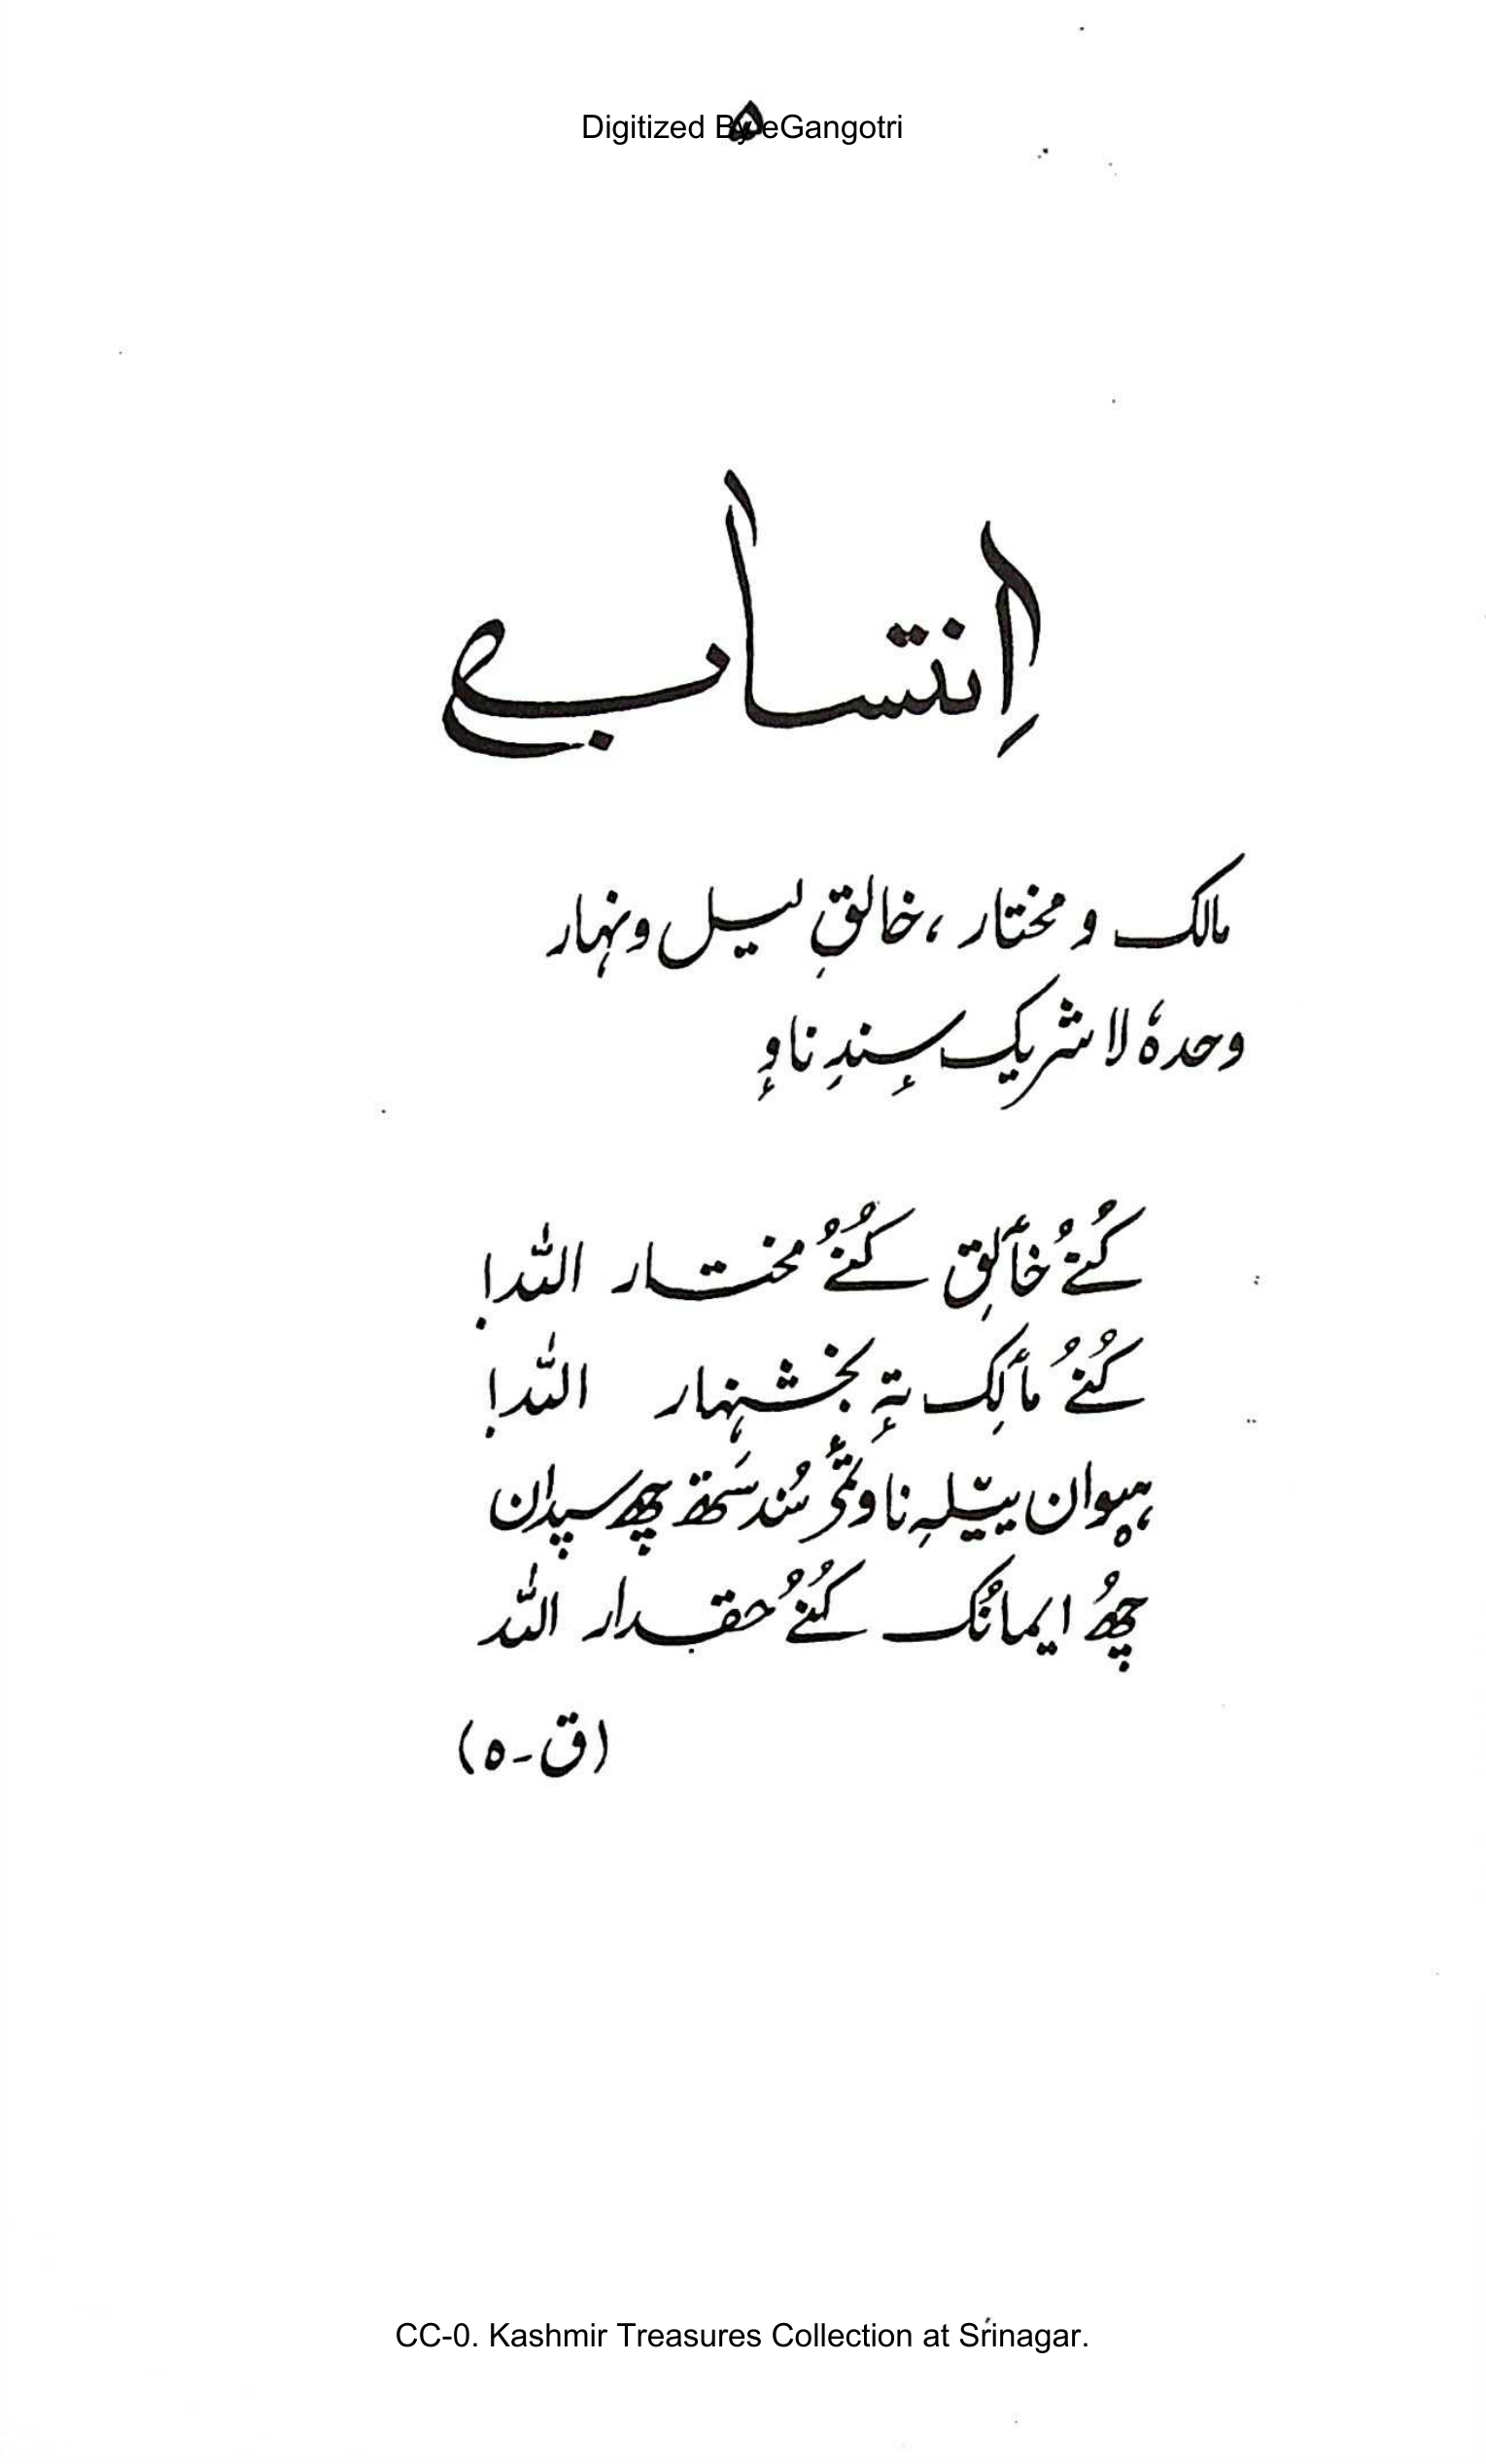 Digitized By eGangotri
۵
اِنتساب
مالک و مختار، خالقِ لیل و نہار
وحدہٗ لا شریک سٕندِ ناوٕ
کُنُے خٲلِق کُنُے مختار اللہ!
کُنُے مٲلِک تہٕ بخشنہار اللہ!
ہیوان ییٚلہِ ناو تٔمۍ سُند سَہٕۃ چھِ سپدان
چھُ ایمانُک کُنُے حقدار اللہ
(ق۔ہ)
CC-0. Kashmir Treasures Collection at Srinagar.